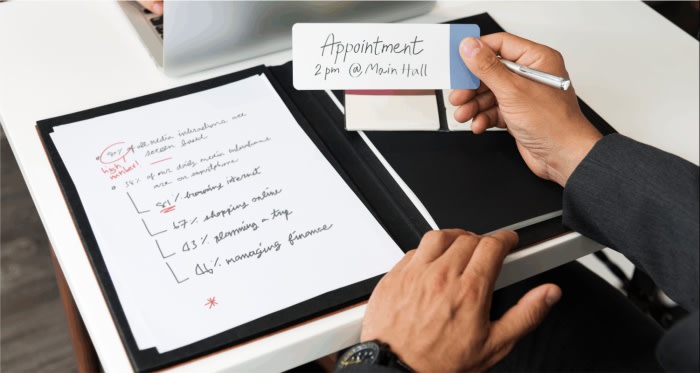 Appointment
2 pm @ Main Hall
90% of all media interactions are
screen based
high
number!
38% of our daily media interactions
are on smartphone
81% browsing internet
67% shopping online
43% planning a trip
46% managing finance
*